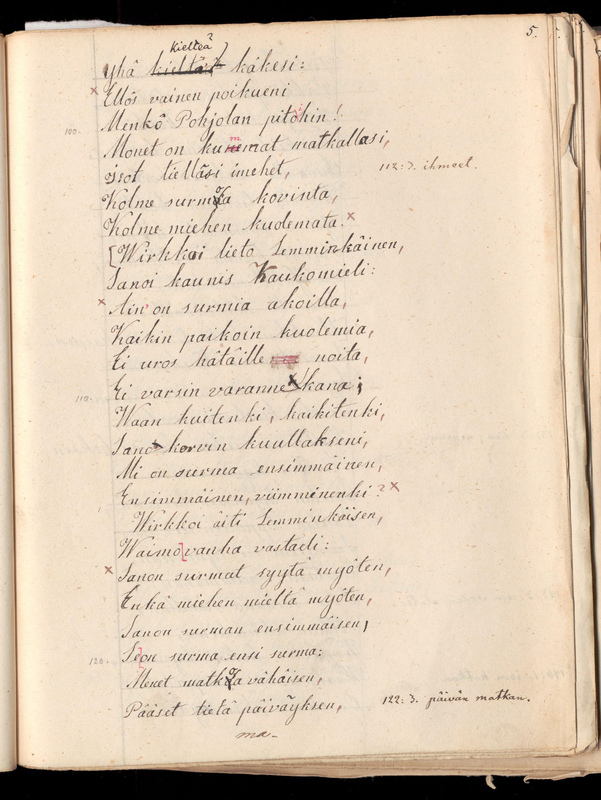 5.
kieltää
Yhä kieltää käkesi:
Ellös vainen poikueni
Menkö Pohjolan pitohin!
100.
Monet on kummat matkallasi,
isot tielläsi imehet,
112: ɔ. ihmeet.
Kolme surmoa kovinta,
Kolme miehen kuolemata.
[Wirkkoi lieto Lemminkäinen,
Sanoi kaunis Kaukomieli:
Ain' on surmia akoilla,
Kaikin paikoin kuolemia,
Ei uros hätäille noita,
110.
Ei varsin varannekana;
Waan kuitenki, kaikitenki,
Sano korvin kuullakseni,
Mi on surma ensimmäinen,
Ensimmäinen, viimminenki?
Wirkkoi äiti Lemminkäisen,
Waimo vanha vastaeli:
Sanon surmat syytä myöten,
Enkä miehen mieltä myöten,
Sanon surman ensimmäisen;
Se on surma ensi surma:
120.
Menet matkoa vähäisen,
Pääset tietä päiväyksen,
122: ɔ. päivän matkan.
ma-